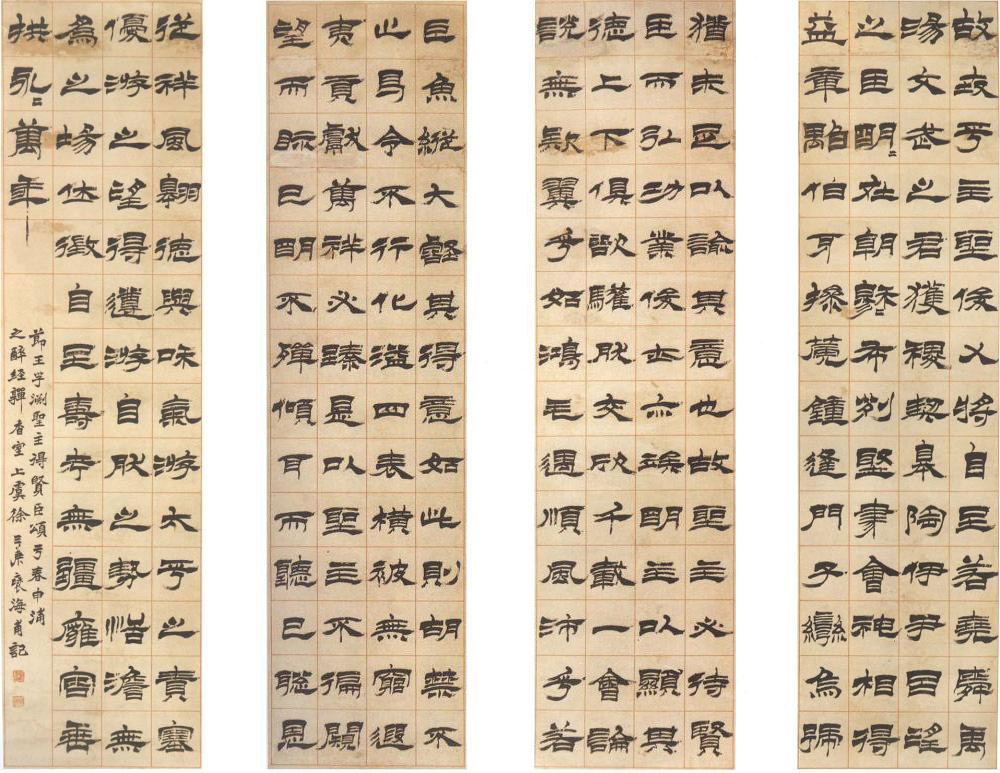 故世平主聖俊乂將自至若堯舜禹
湯文武之君獲稷契皋陶伊尹呂望
之臣明〻在朝穆〻布列聚精會神相得
益章雖伯牙操鍾逢門子彎烏號
猶未足以諭其意也故聖主必待賢
臣而弘功業俊士亦俟明主以顯其
德上下俱欲驩然交欣千載一會論
說無疑翼乎如鴻毛遇順風沛乎若
巨魚縱大壑其得意如此則胡禁不
止曷令不行化溢四表橫被無窮遐
夷貢獻萬祥必臻是以聖主不徧闚
望而視已明不殫傾耳而聽已聰恩
從祥風翱德與和氣游太平之責塞
優游之望得遵游自然之勢恬澹無
為之場休徵自至壽考無疆雍容垂
拱永〻萬年
節王子淵聖主得賢臣頌于春申浦
之醉經軃香室上虞徐三庚褎海甫記